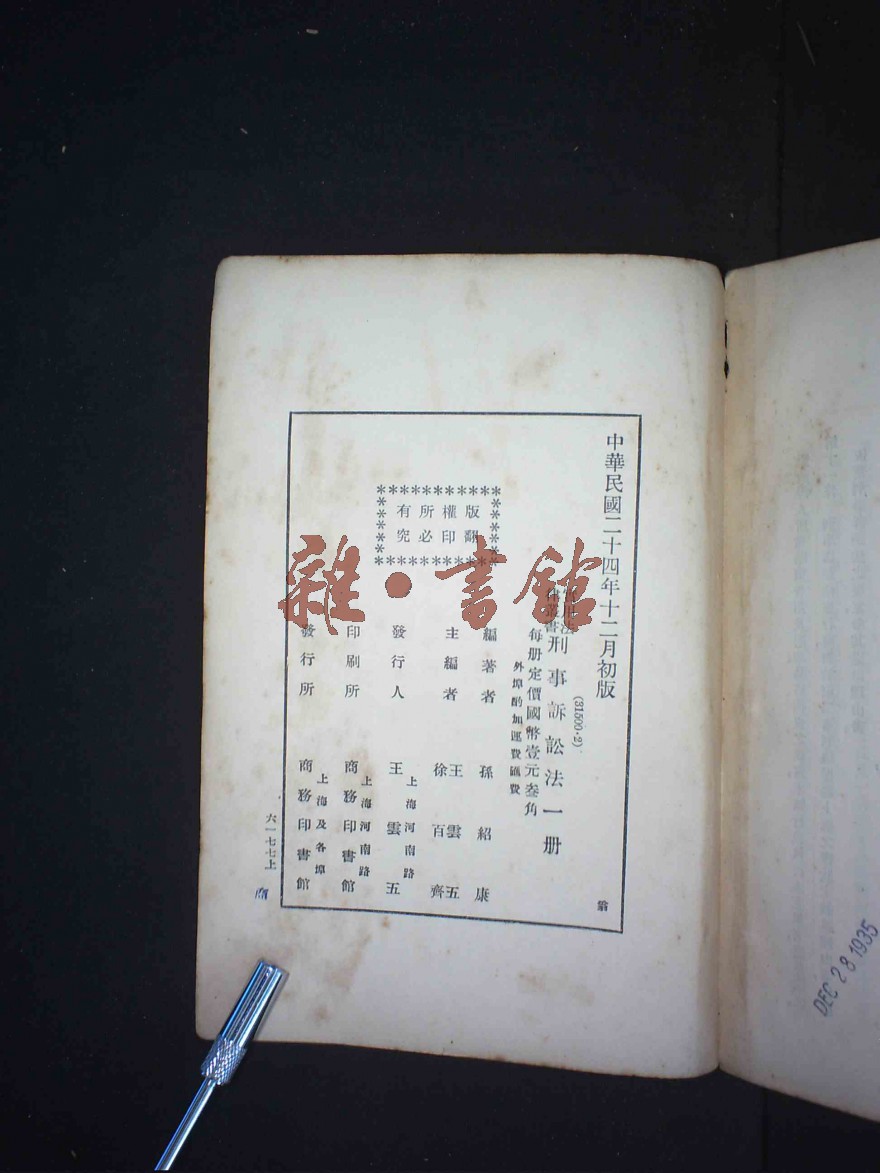 中華民國二十四年十二月初版
(31500·2)
刑事訴訟法一册
每册定價國幣壹元叁角
外埠酌加運費匯費
版權所有
翻印必究
編著者 孫紹康
主編者 王雲五 徐百齊
發行人 王雲五
上海河南路
印刷所 商務印書館
上海河南路
發行所 商務印書館
上海及各埠
六一七七上
雜·書館
DEC 28 1935